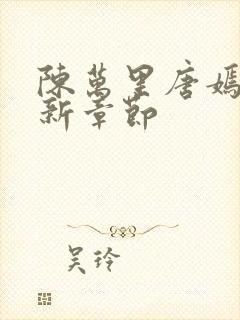 陳萬里唐嫣
新章節
吳玲